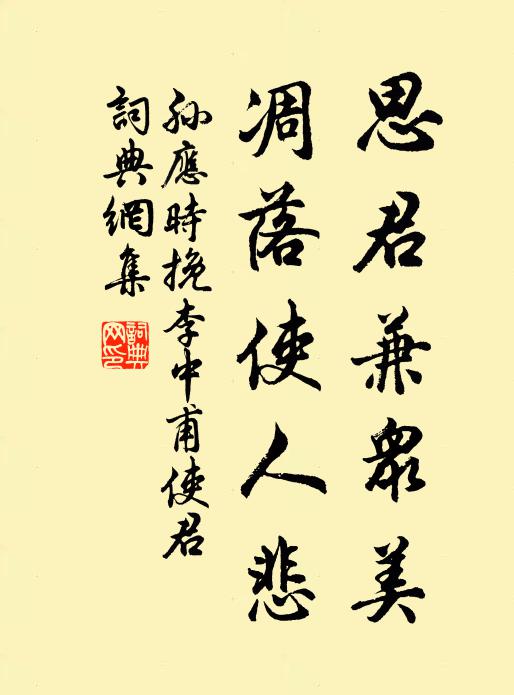 思君兼眾美
凋落使人悲
孫應時挽李中甫使君
詞典網集
詞典網印